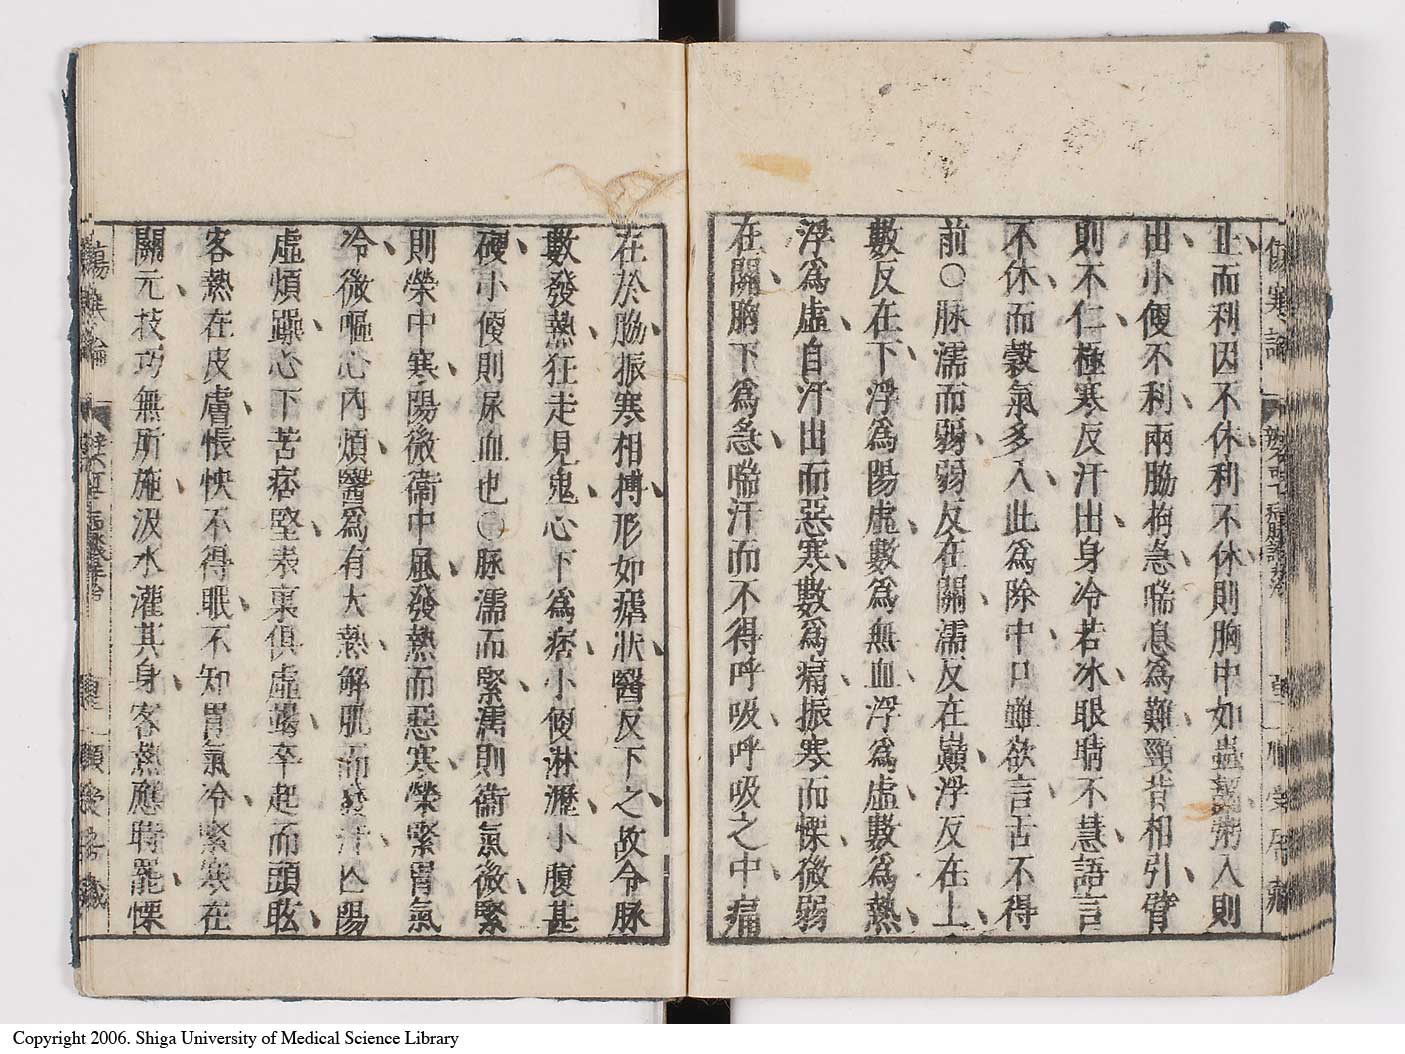 傷寒論
止而利因不休利不休則胸中如蟲齧粥入則
出小便不利兩脇拘急喘息爲難頸背相引臂
則不仁極寒反汗出身冷若冰眼睛不慧語言
不休而穀氣多入此爲除中口雖欲言舌不得
前○脉濡而弱弱反在關濡反在巔浮反在上
數反在下浮爲陽虛數爲無血浮爲虛數爲熱
浮爲虛自汗出而惡寒數爲痛振寒而慄微弱
在關胸下爲急喘汗而不得呼吸呼吸之中痛
在於脇振寒相搏形如瘧狀醫反下之故令脉
數發熱狂走見鬼心下爲痞小便淋瀝小腹甚
硬小便則尿血也○脉濡而緊濡則衞氣微緊
則榮中寒陽微衞中風發熱而惡寒榮緊胃氣
冷微嘔心内煩醫爲有大熱解肌而發汗亡陽
虛煩躁心下苦痞堅表裏俱虛竭卒起而頭眩
客熱在皮膚悵怏不得眠不知胃氣冷緊寒在
關元技巧無所施汲水灌其身客熱應時罷慄
Copyright 2006. Shiga University of Medical Science Library